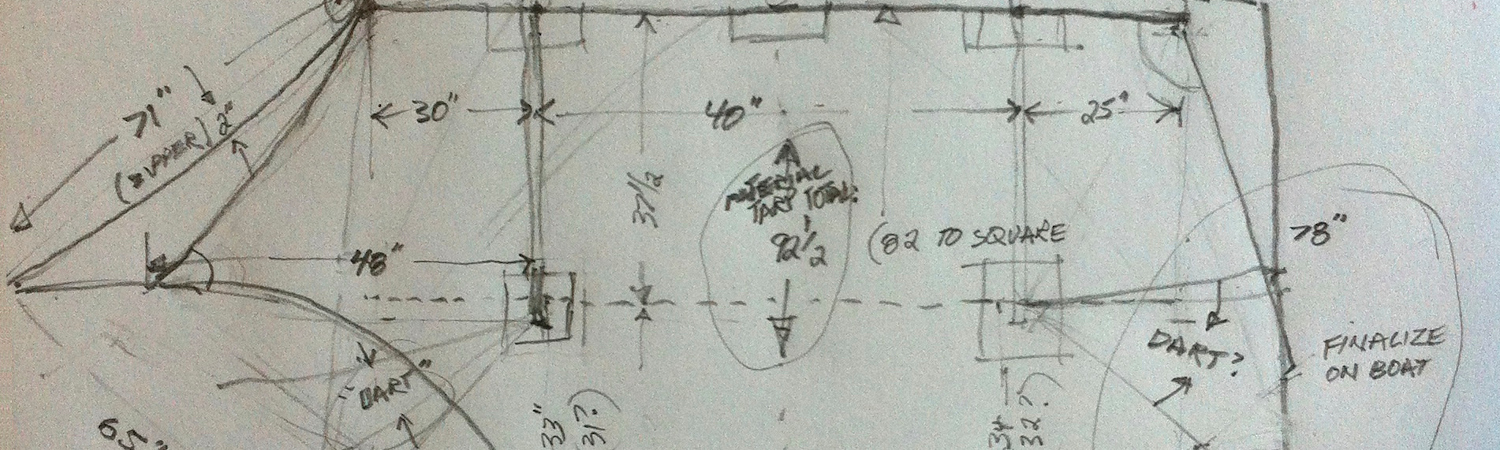 71"
(ZIPPER) 2"
30"
40"
25"
37 1/2
MATERIAL
TARP TOTAL:
92 1/2
(82 TO SQUARE
78"
48"
"DART"
DART?
FINALIZE
ON BOAT
65"
33"
31?)
34
32?)